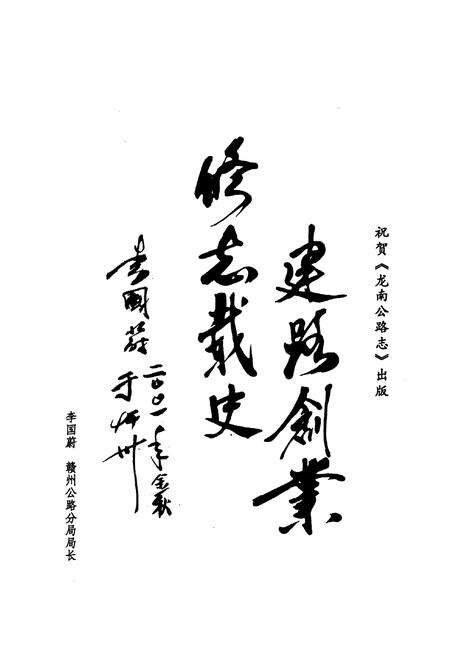 祝賀《龙南公路志》出版
建路創業
修志載史
李國蔚
二〇〇一年金秋
于赣州
李国蔚 赣州公路分局局长